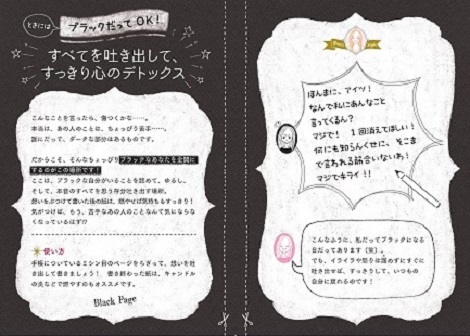 ときには
ブラックだってOK!
すべてを吐き出して、
すっきり心のデトックス
こんなことを言ったら、傷つくかな……。
本当は、あの人のことは、ちょっぴり苦手……。
誰にだって、ダークな部分はあるものです。
だからこそ、そんなちょっぴりブラックなあなたを全開に
するのがこの場所です!
ここは、ブラックな自分がいることを認めて、ゆるし、
そして、本音のすべてを思う存分吐き出す場所。
想いをぶつけて書いた後の紙は、燃やせば気持ちもすっきり!
気がつけば、もう、苦手なあの人のことなんて気にならな
くなっているはず!?
使い方
手帳についているミシン目のページをちぎって、想いを吐
き出して書きましょう! 書き終わった紙は、キャンドル
の炎などで燃やすのもオススメです。
Black Page
ほんまに、アイツ!
なんで私にあんなこと
言ってくるん?
マジで! 1回消えてほしい!
何にも知らんくせに、そこま
で言われる筋合いないわ!
マジでキライ!!
こんなように、私だってブラックになる
日だってあります(笑)。
でも、イライラや怒りは溜めずにすぐに
吐き出せば、すっきりして、いつもの
自分に戻れるのです!